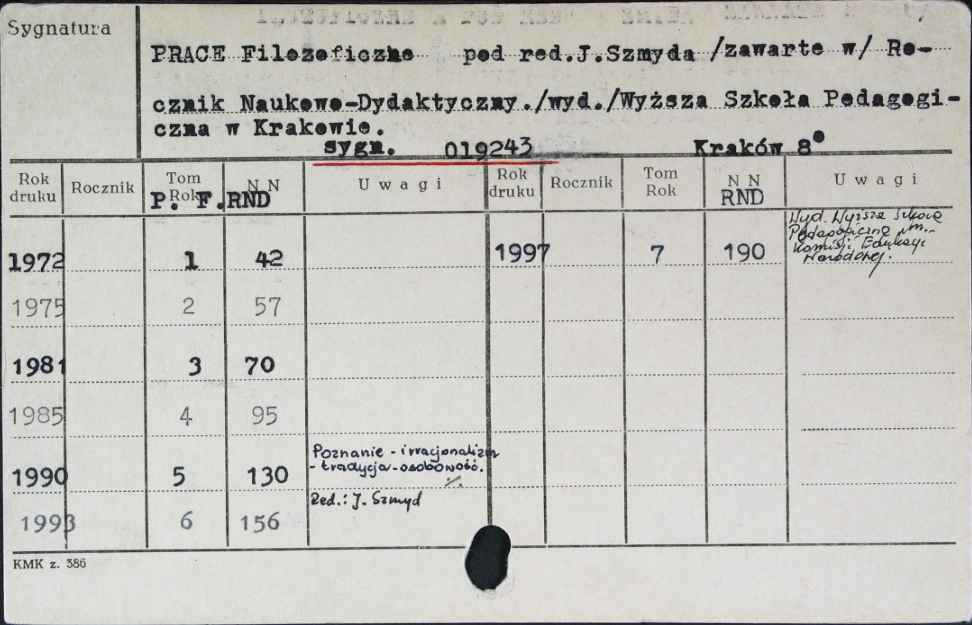 Sygnatura
PRACE Filozoficzne pod red.J.Szmyda /zawarte w/ Ro-
cznik Naukowo-Dydaktyczny./wyd./Wyższa Szkoła Pedagogi-
czna w Krakowie.
sygn. 019243 Kraków 8°
Rok druku Rocznik Tom Rok N N Uwagi Rok druku Rocznik Tom Rok N N Uwagi
P. F. RND RND
1972 1 42 1997 7 190 Wyd. Wyższa Szkoła
Pedagogiczna im.
Komisji Edukacji
Narodowej.
1975 2 57
1981 3 70
1985 4 95
1990 5 130 Poznanie - irracjonalizm
- tradycja - osobowość.
Red.: J. Szmyd
1993 6 156
KMK z. 386